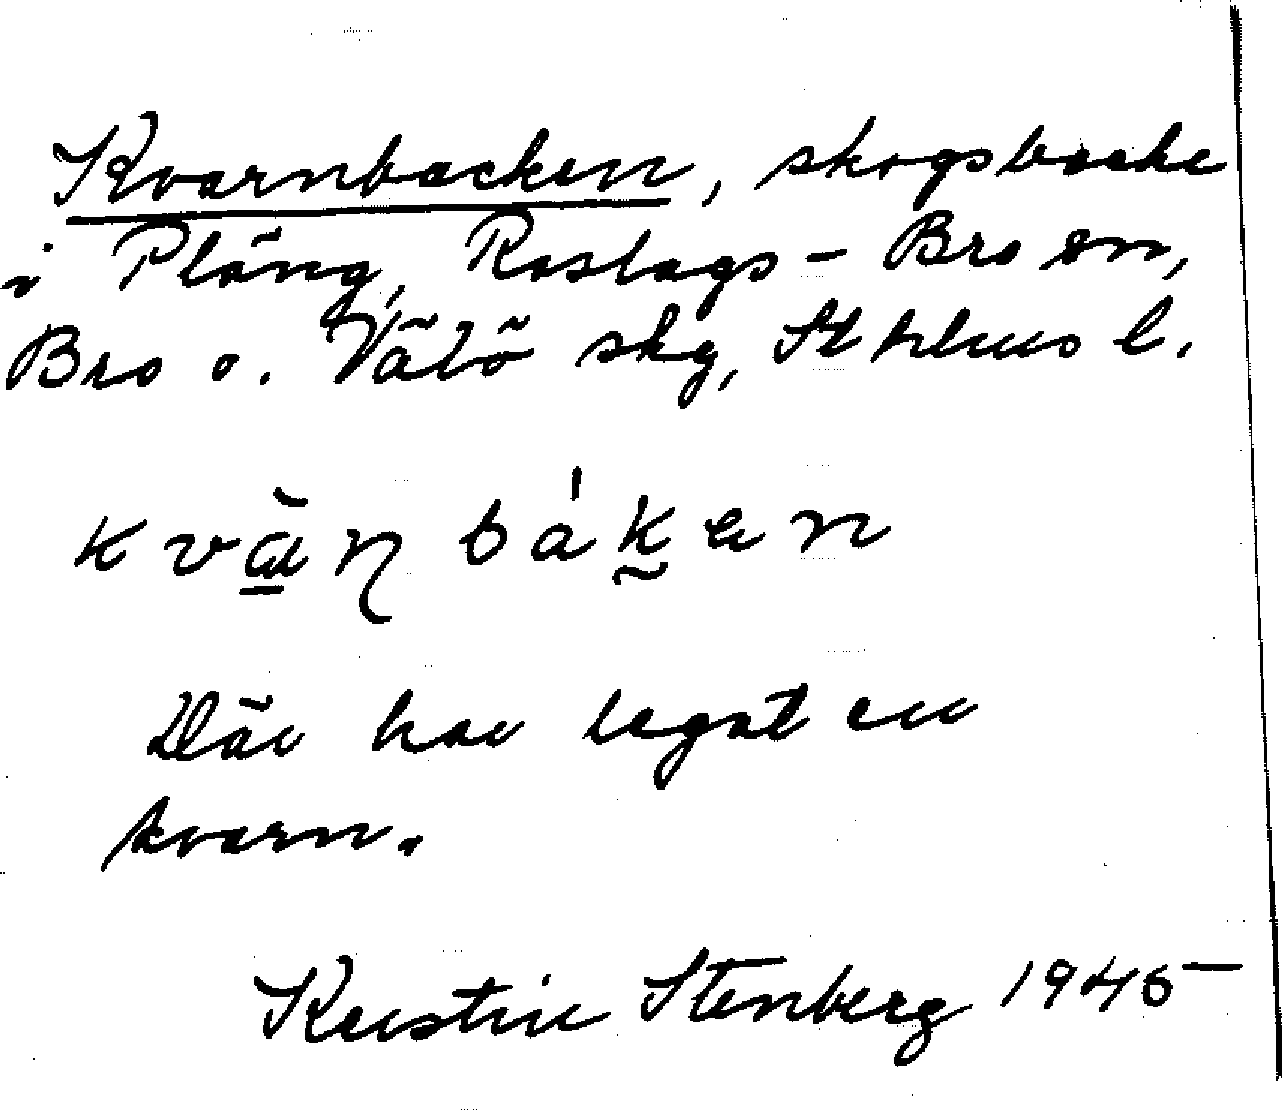 Kvarnbacken, skogsbacke
i Pläng, Roslags-Bro sn,
Bro o. Vätö skg, Sthlms l.
kvàɳ báken
Där har legat en
kvarn.
Kerstin Stenberg 1945